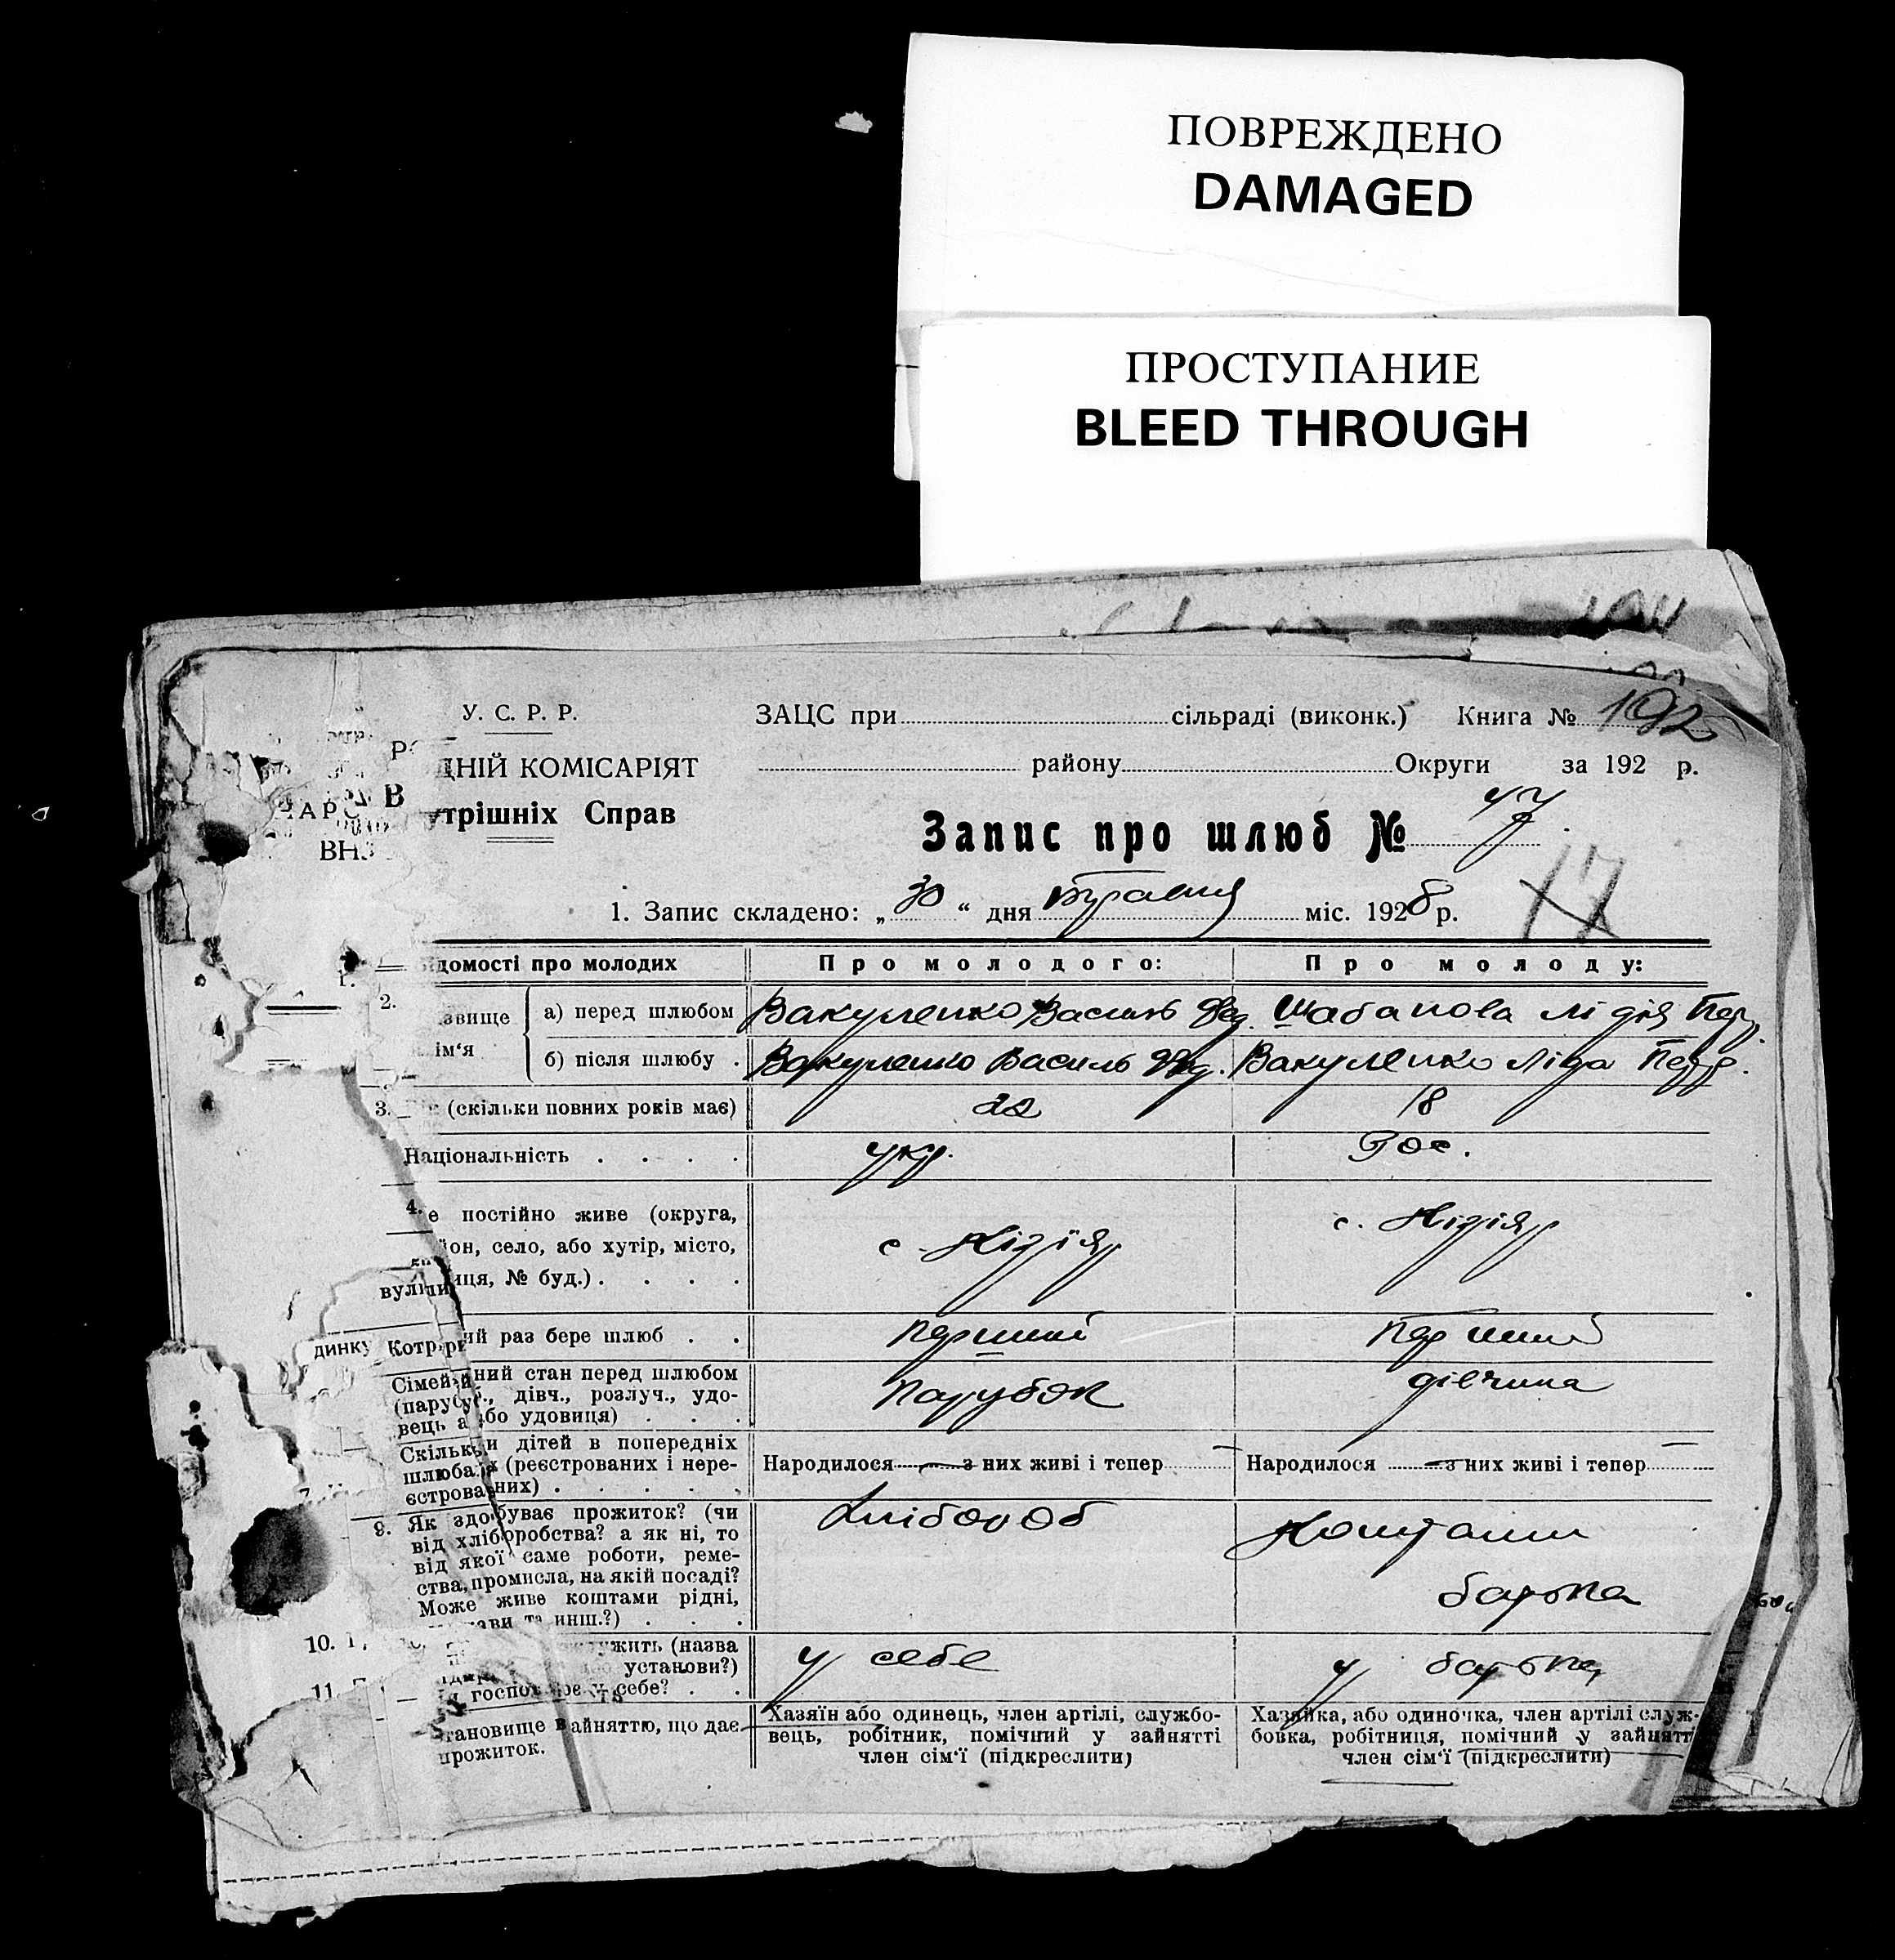 ПОВРЕЖДЕНО
DAMAGED
ПРОСТУПАНИЕ
BLEED THROUGH
У. С. Р. Р.
ДНІЙ КОМІСАРІЯТ
трішніх Справ
ЗАЦС при сільраді (виконк.) Книга № 192
району Округи за 192 р.
Запис про шлюб №
17
1. Запис складено: „ 30 “ дня травня міс. 1928 р.
домості про молодих Про молодого: Про молоду:
2. звище ім‘я а) перед шлюбом Вакуленко Василь Шабанова Лідія
б) після шлюбу . Вакуленко Василь Вакуленко Ліда
3. (скільки повних років має) 22 18
Національність . . . . укр. Рос.
4. е постійно живе (округа,
йон, село, або хутір, місто,
вулиця, № буд.) . . . . с. Кідіяр с. Кідіяр
динку Котрий раз бере шлюб . . перший перший
Сімейний стан перед шлюбом
(паруб., дівч., розлуч., удо-
вець або удовиця) . . . парубок дівчина
Скільки дітей в попередніх
шлюбах (реєстрованих і нере-
єстрованих) . . . . . Народилося — з них живі і тепер — Народилося — з них живі і тепер —
9. Як здобуває прожиток? (чи
від хліборобства? а як ні, то
від якої саме роботи, реме-
ства, промисла, на якій посаді?
Може живе коштами рідні,
ави та инш.?) . . . Хлібороб Коштами
батька
10. ужить (назва
установи?)
11. госпо у себе? . . у себе у батька
тановище в айняттю, що дає
прожиток.
Хазяїн або одинець, член артілі, службо-
вець, робітник, помічний у зайнятті
член сім‘ї (підкреслити)
Хазяйка, або одиночка, член артілі служ-
бовка, робітниця, помічний у зайнятті
член сім‘ї (підкреслити)